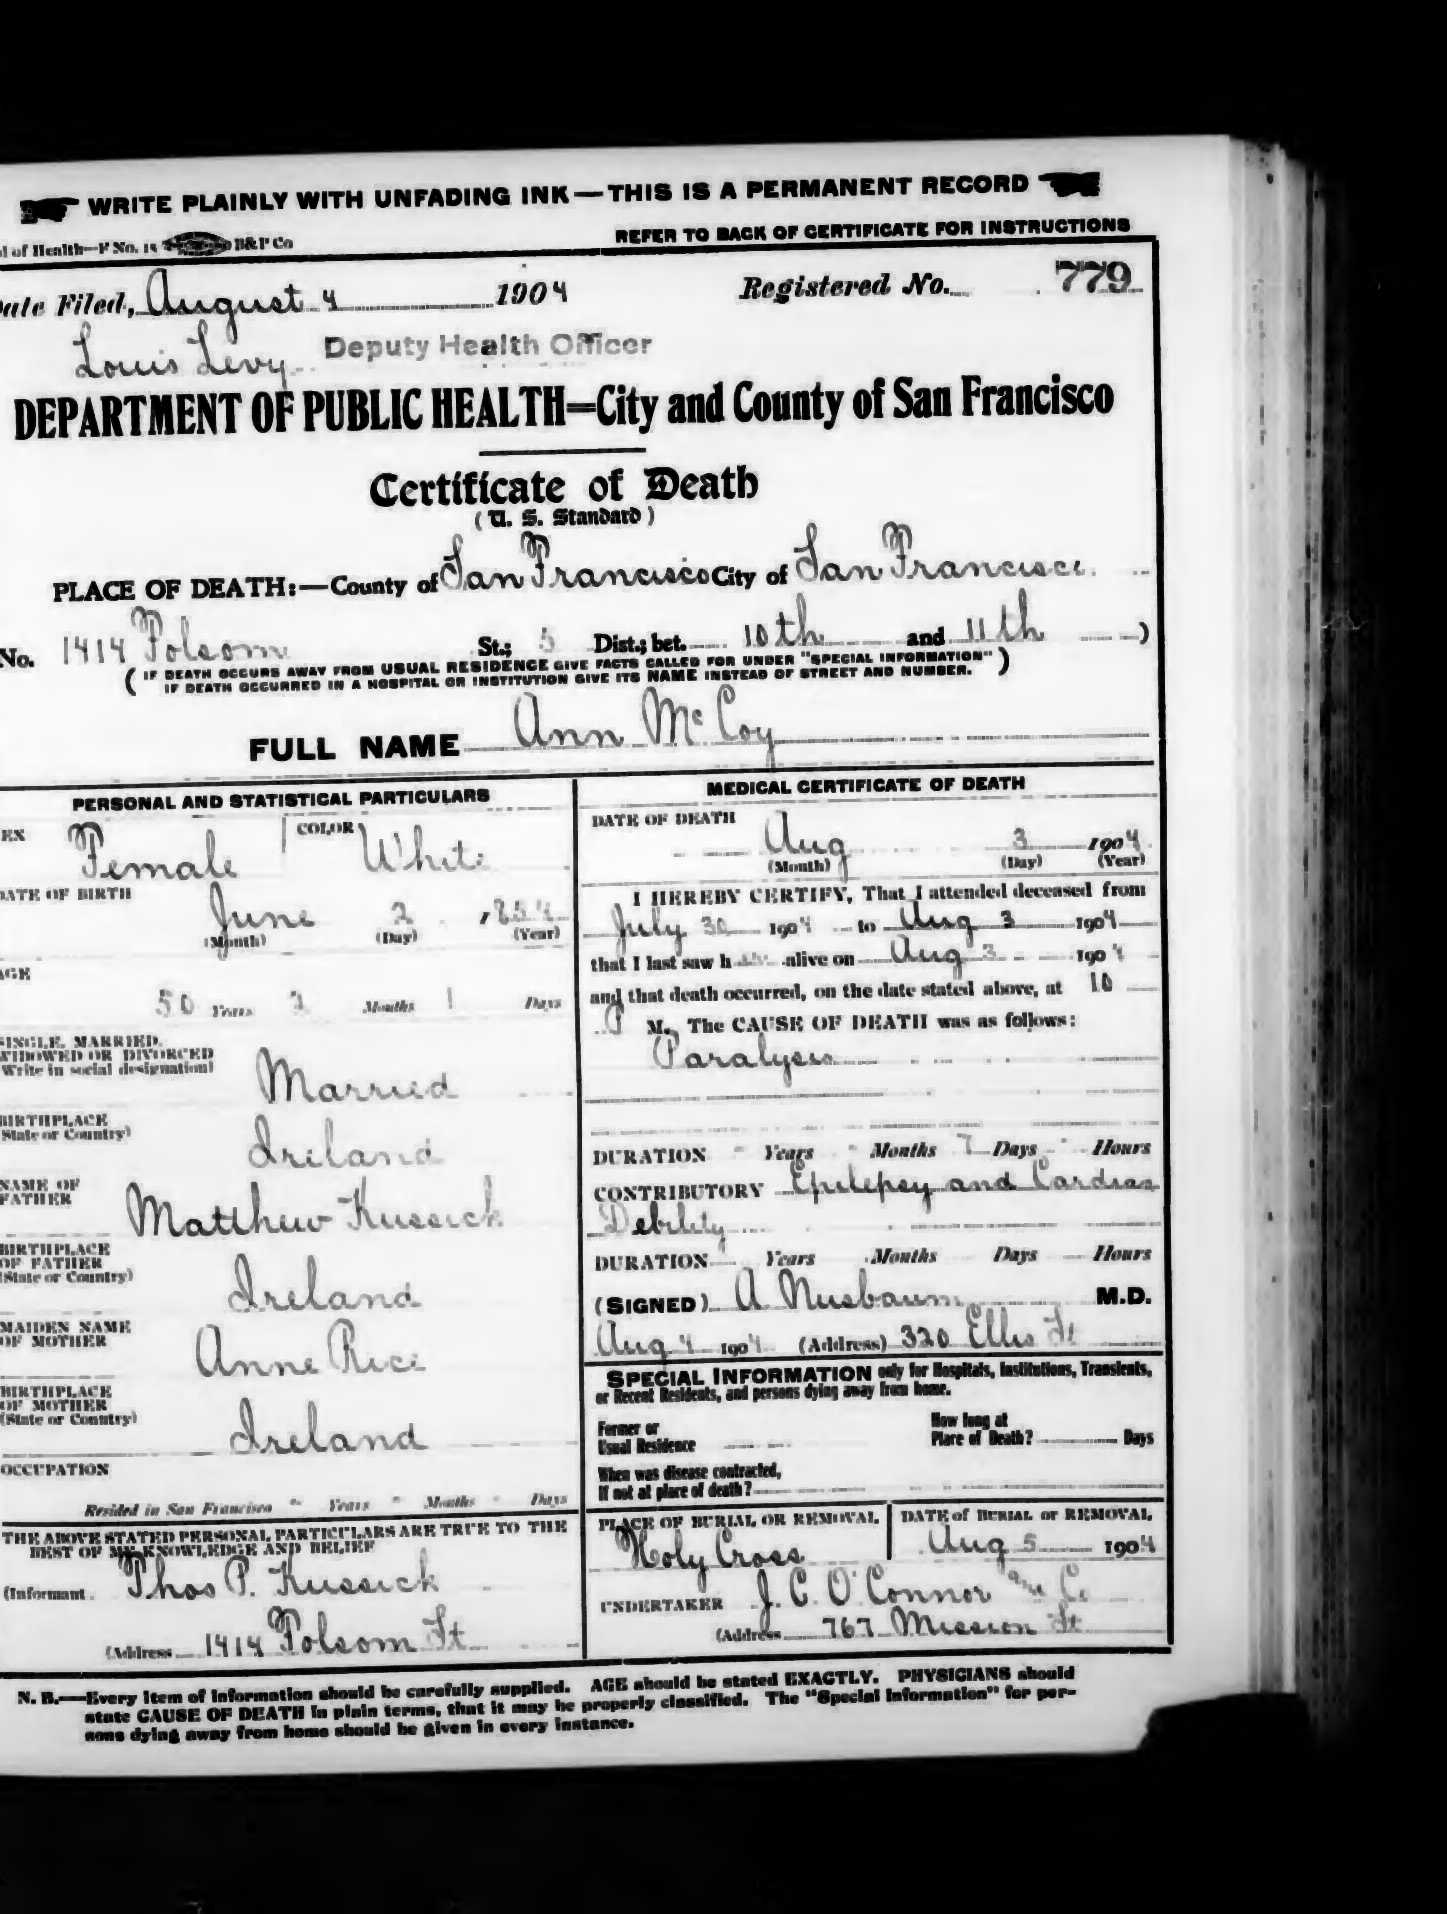 WRITE PLAINLY WITH UNFADING INK — THIS IS A PERMANENT RECORD
of Health—F No. 15 B&P Co REFER TO BACK OF CERTIFICATE FOR INSTRUCTIONS
Date Filed, August 4 1904 Registered No. 779
Louis Levy Deputy Health Officer
DEPARTMENT OF PUBLIC HEALTH=City and County of San Francisco
Certificate of Death
(U. S. Standard)
PLACE OF DEATH:—County of San Francisco City of San Francisco
No. 1414 Folsom St.; 5 Dist.; bet. 10th and 11th )
( IF DEATH OCCURS AWAY FROM USUAL RESIDENCE GIVE FACTS CALLED FOR UNDER "SPECIAL INFORMATION" )
IF DEATH OCCURRED IN A HOSPITAL OR INSTITUTION GIVE ITS NAME INSTEAD OF STREET AND NUMBER.
FULL NAME Ann McCoy
PERSONAL AND STATISTICAL PARTICULARS
SEX Female COLOR White
DATE OF BIRTH
June 2 1854
(Month) (Day) (Year)
AGE
50 Years 2 Months 1 Days
SINGLE, MARRIED,
WIDOWED OR DIVORCED
(Write in social designation)
Married
BIRTHPLACE
(State or Country)
Ireland
NAME OF
FATHER
Matthew Kussick
BIRTHPLACE
OF FATHER
(State or Country)
Ireland
MAIDEN NAME
OF MOTHER
Anne Rice
BIRTHPLACE
OF MOTHER
(State or Country)
Ireland
OCCUPATION
Resided in San Francisco - Years - Months - Days
THE ABOVE STATED PERSONAL PARTICULARS ARE TRUE TO THE
BEST OF MY KNOWLEDGE AND BELIEF
(Informant Thos P. Kussick
(Address 1414 Folsom St
MEDICAL CERTIFICATE OF DEATH
DATE OF DEATH
Aug 3 1904
(Month) (Day) (Year)
I HEREBY CERTIFY, That I attended deceased from
July 30 1904 to Aug 3 1904
that I last saw h alive on Aug 3 1904
and that death occurred, on the date stated above, at 10
P M. The CAUSE OF DEATH was as follows:
Paralysis
DURATION - Years - Months 7 Days - Hours
CONTRIBUTORY Epilepsy and Cardiac
Debility
DURATION Years Months Days Hours
(SIGNED) A. Nusbaum M.D.
Aug 4 1904 (Address) 320 Ellis St
SPECIAL INFORMATION only for Hospitals, Institutions, Transients,
or Recent Residents, and persons dying away from home.
Former or
Usual Residence
How long at
Place of Death? Days
When was disease contracted,
If not at place of death?
PLACE OF BURIAL OR REMOVAL
Holy Cross
DATE of BURIAL or REMOVAL
Aug 5 1904
UNDERTAKER J. C. O'Connor and Co
(Address 767 Mission St
N. B.—Every item of information should be carefully supplied. AGE should be stated EXACTLY. PHYSICIANS should
state CAUSE OF DEATH in plain terms, that it may be properly classified. The "Special Information" for per-
sons dying away from home should be given in every instance.